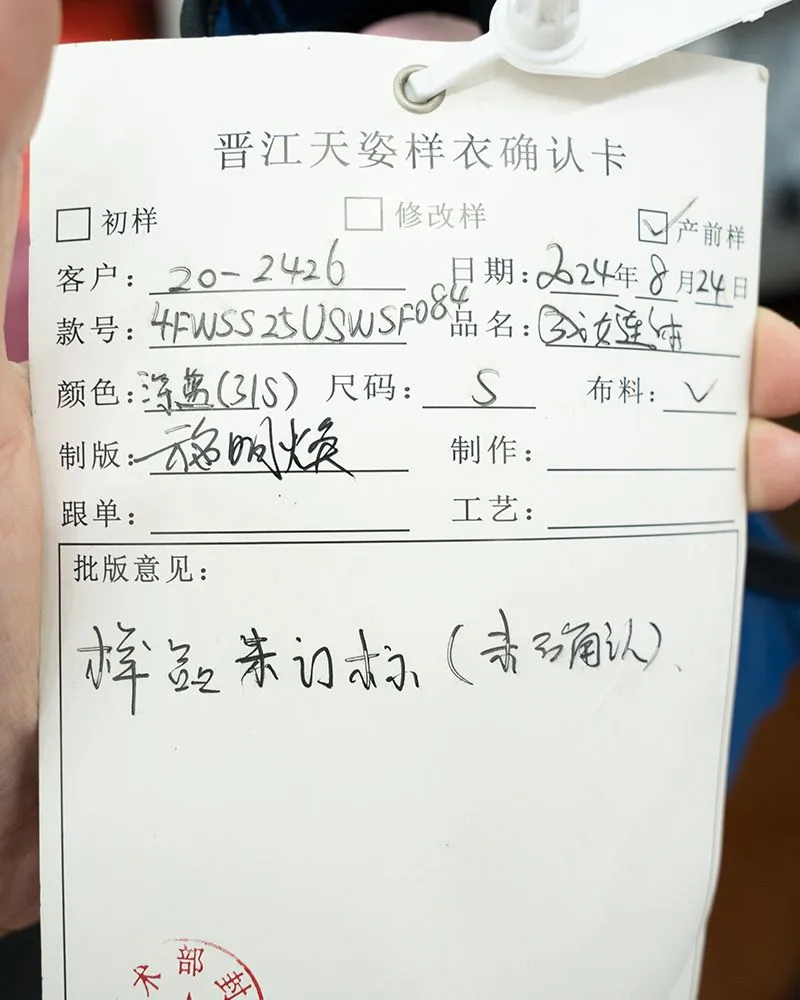 晋江天姿样衣确认卡
初样 修改样 产前样
客户：20-2426 日期：2024年8月24日
款号：4FWSS25USWSF084 品名：女连体
颜色：深蓝(31S) 尺码：S 布料：√
制版：施明焕 制作：
跟单： 工艺：
批版意见：
样 未订标（未确认）
术部封